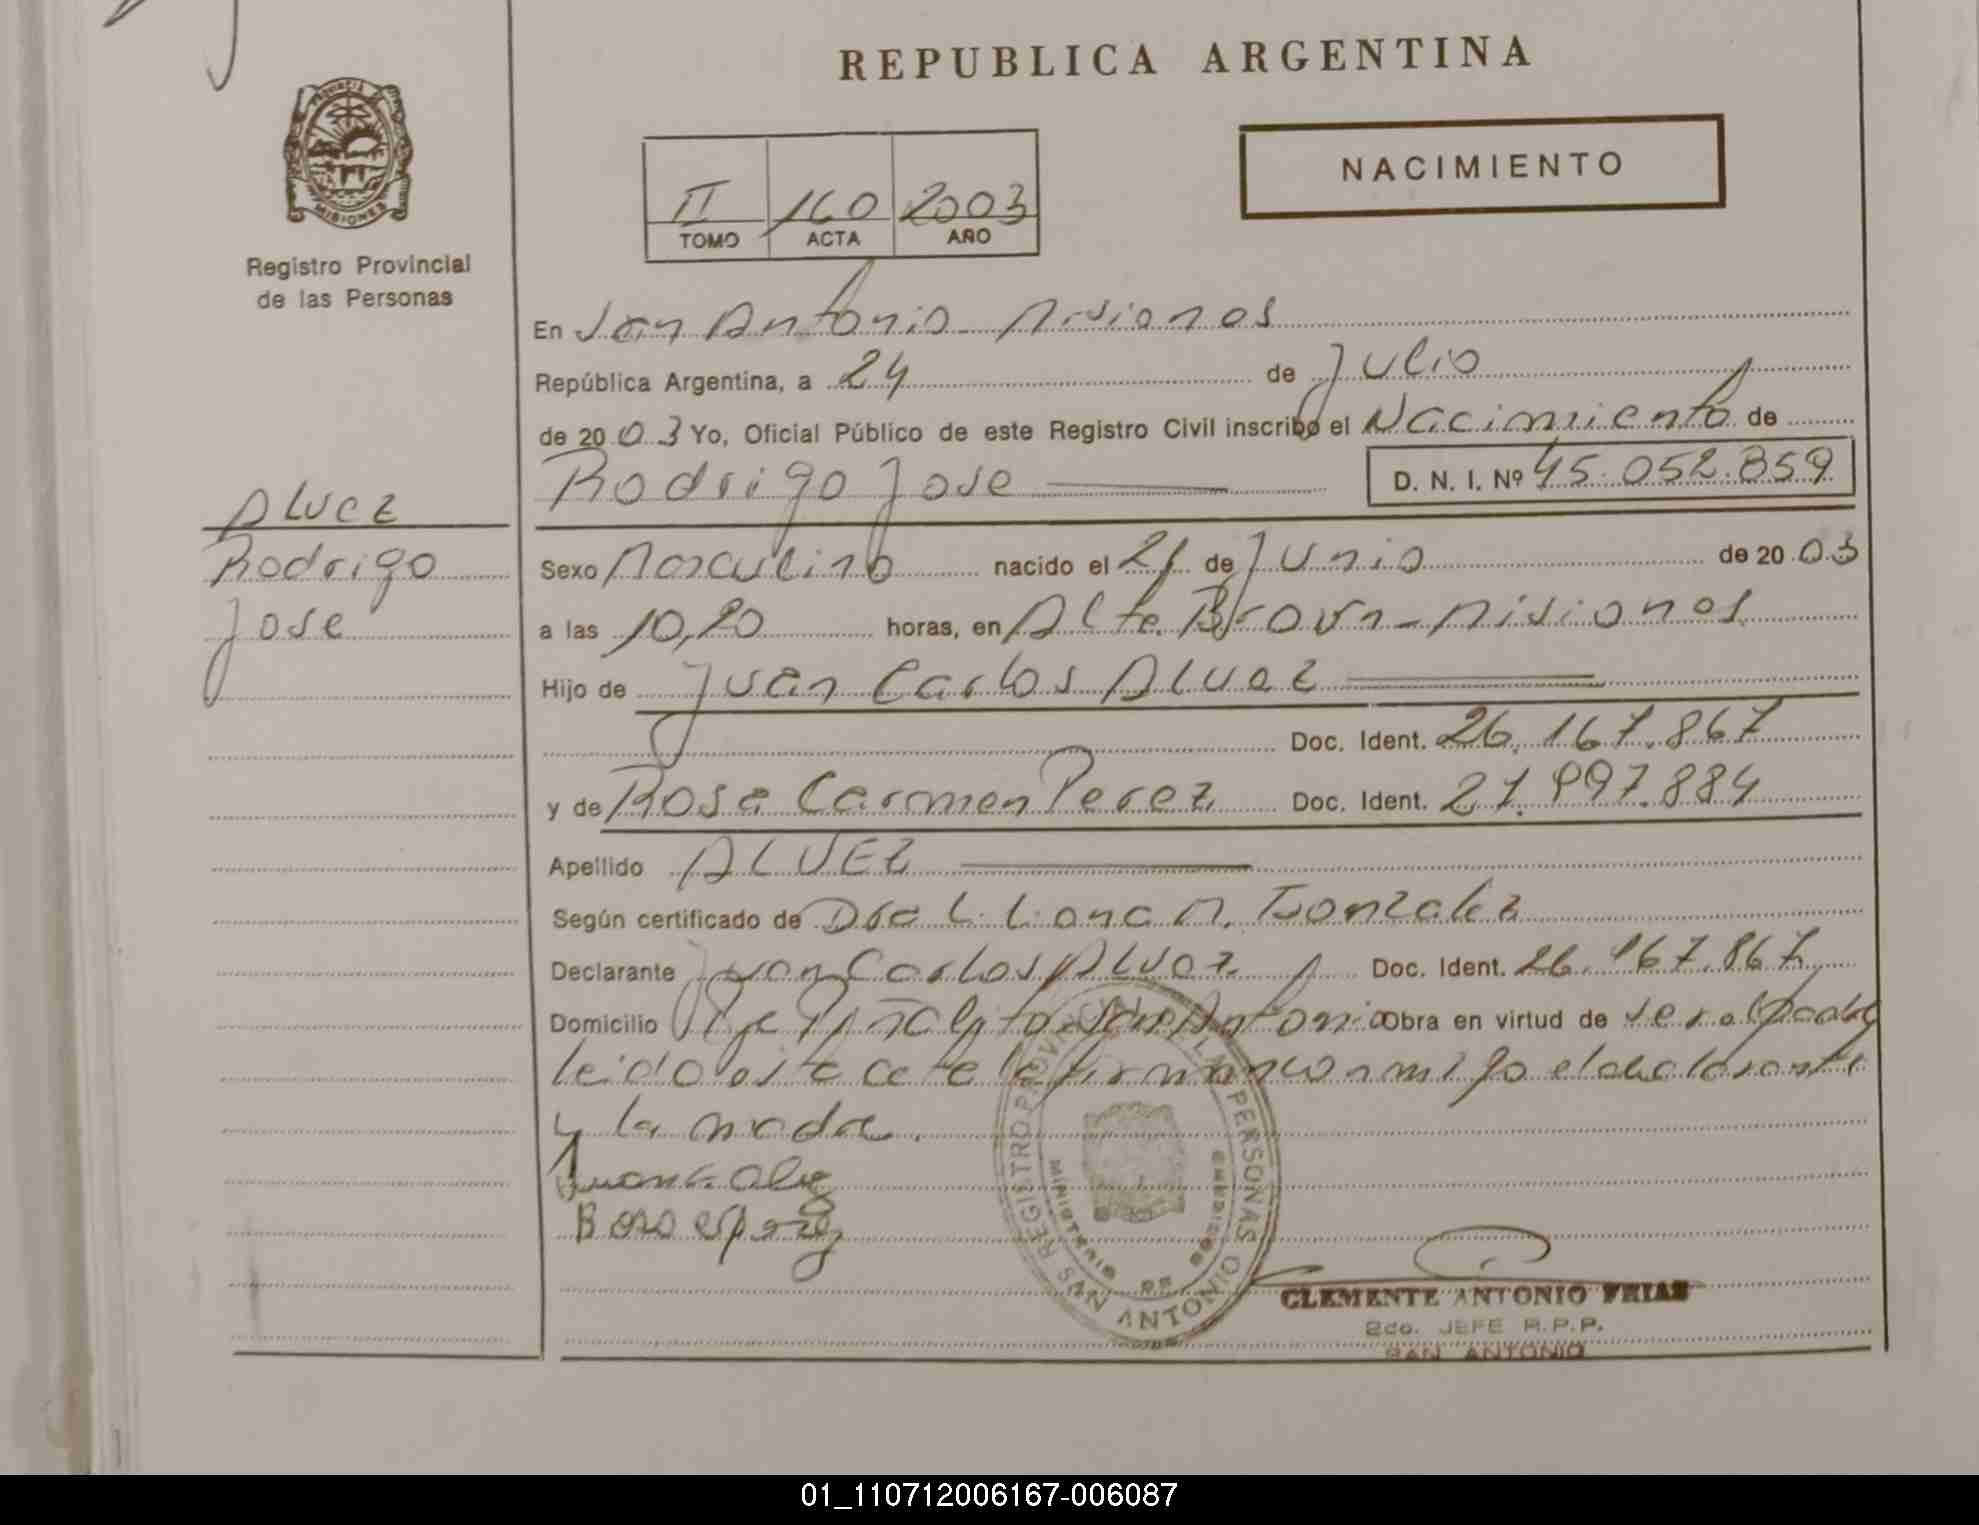 REPUBLICA ARGENTINA
NACIMIENTO
II 160 2003
TOMO ACTA AÑO
PROVINCIA DE MISIONES
Registro Provincial
de las Personas
En San Antonio - Misiones
República Argentina, a 24 de Julio
de 2003 Yo, Oficial Público de este Registro Civil inscribo el Nacimiento de
Rodrigo Jose D. N. I. Nº 45.052.859
ALVEZ
Rodrigo
Jose
Sexo Masculino nacido el 21 de Junio de 2003
a las 10,20 horas, en Alte. Brown - Misiones
Hijo de Juan Carlos Alvez
Doc. Ident. 26.167.867
y de Rosa Carmen Perez Doc. Ident. 27.997.884
Apellido ALVEZ
Según certificado de Dra Liliana M. Gonzalez
Declarante Juan Carlos Alvez Doc. Ident. 26.167.867
Domicilio Pje Piñalito San Antonio Obra en virtud de ser el padre
leida esta acta la firman conmigo el declarante
y la madre.
REGISTRO PROVINCIAL DE LAS PERSONAS
SAN ANTONIO
CLEMENTE ANTONIO FRIAS
2do. JEFE R.P.P.
SAN ANTONIO
01_110712006167-006087